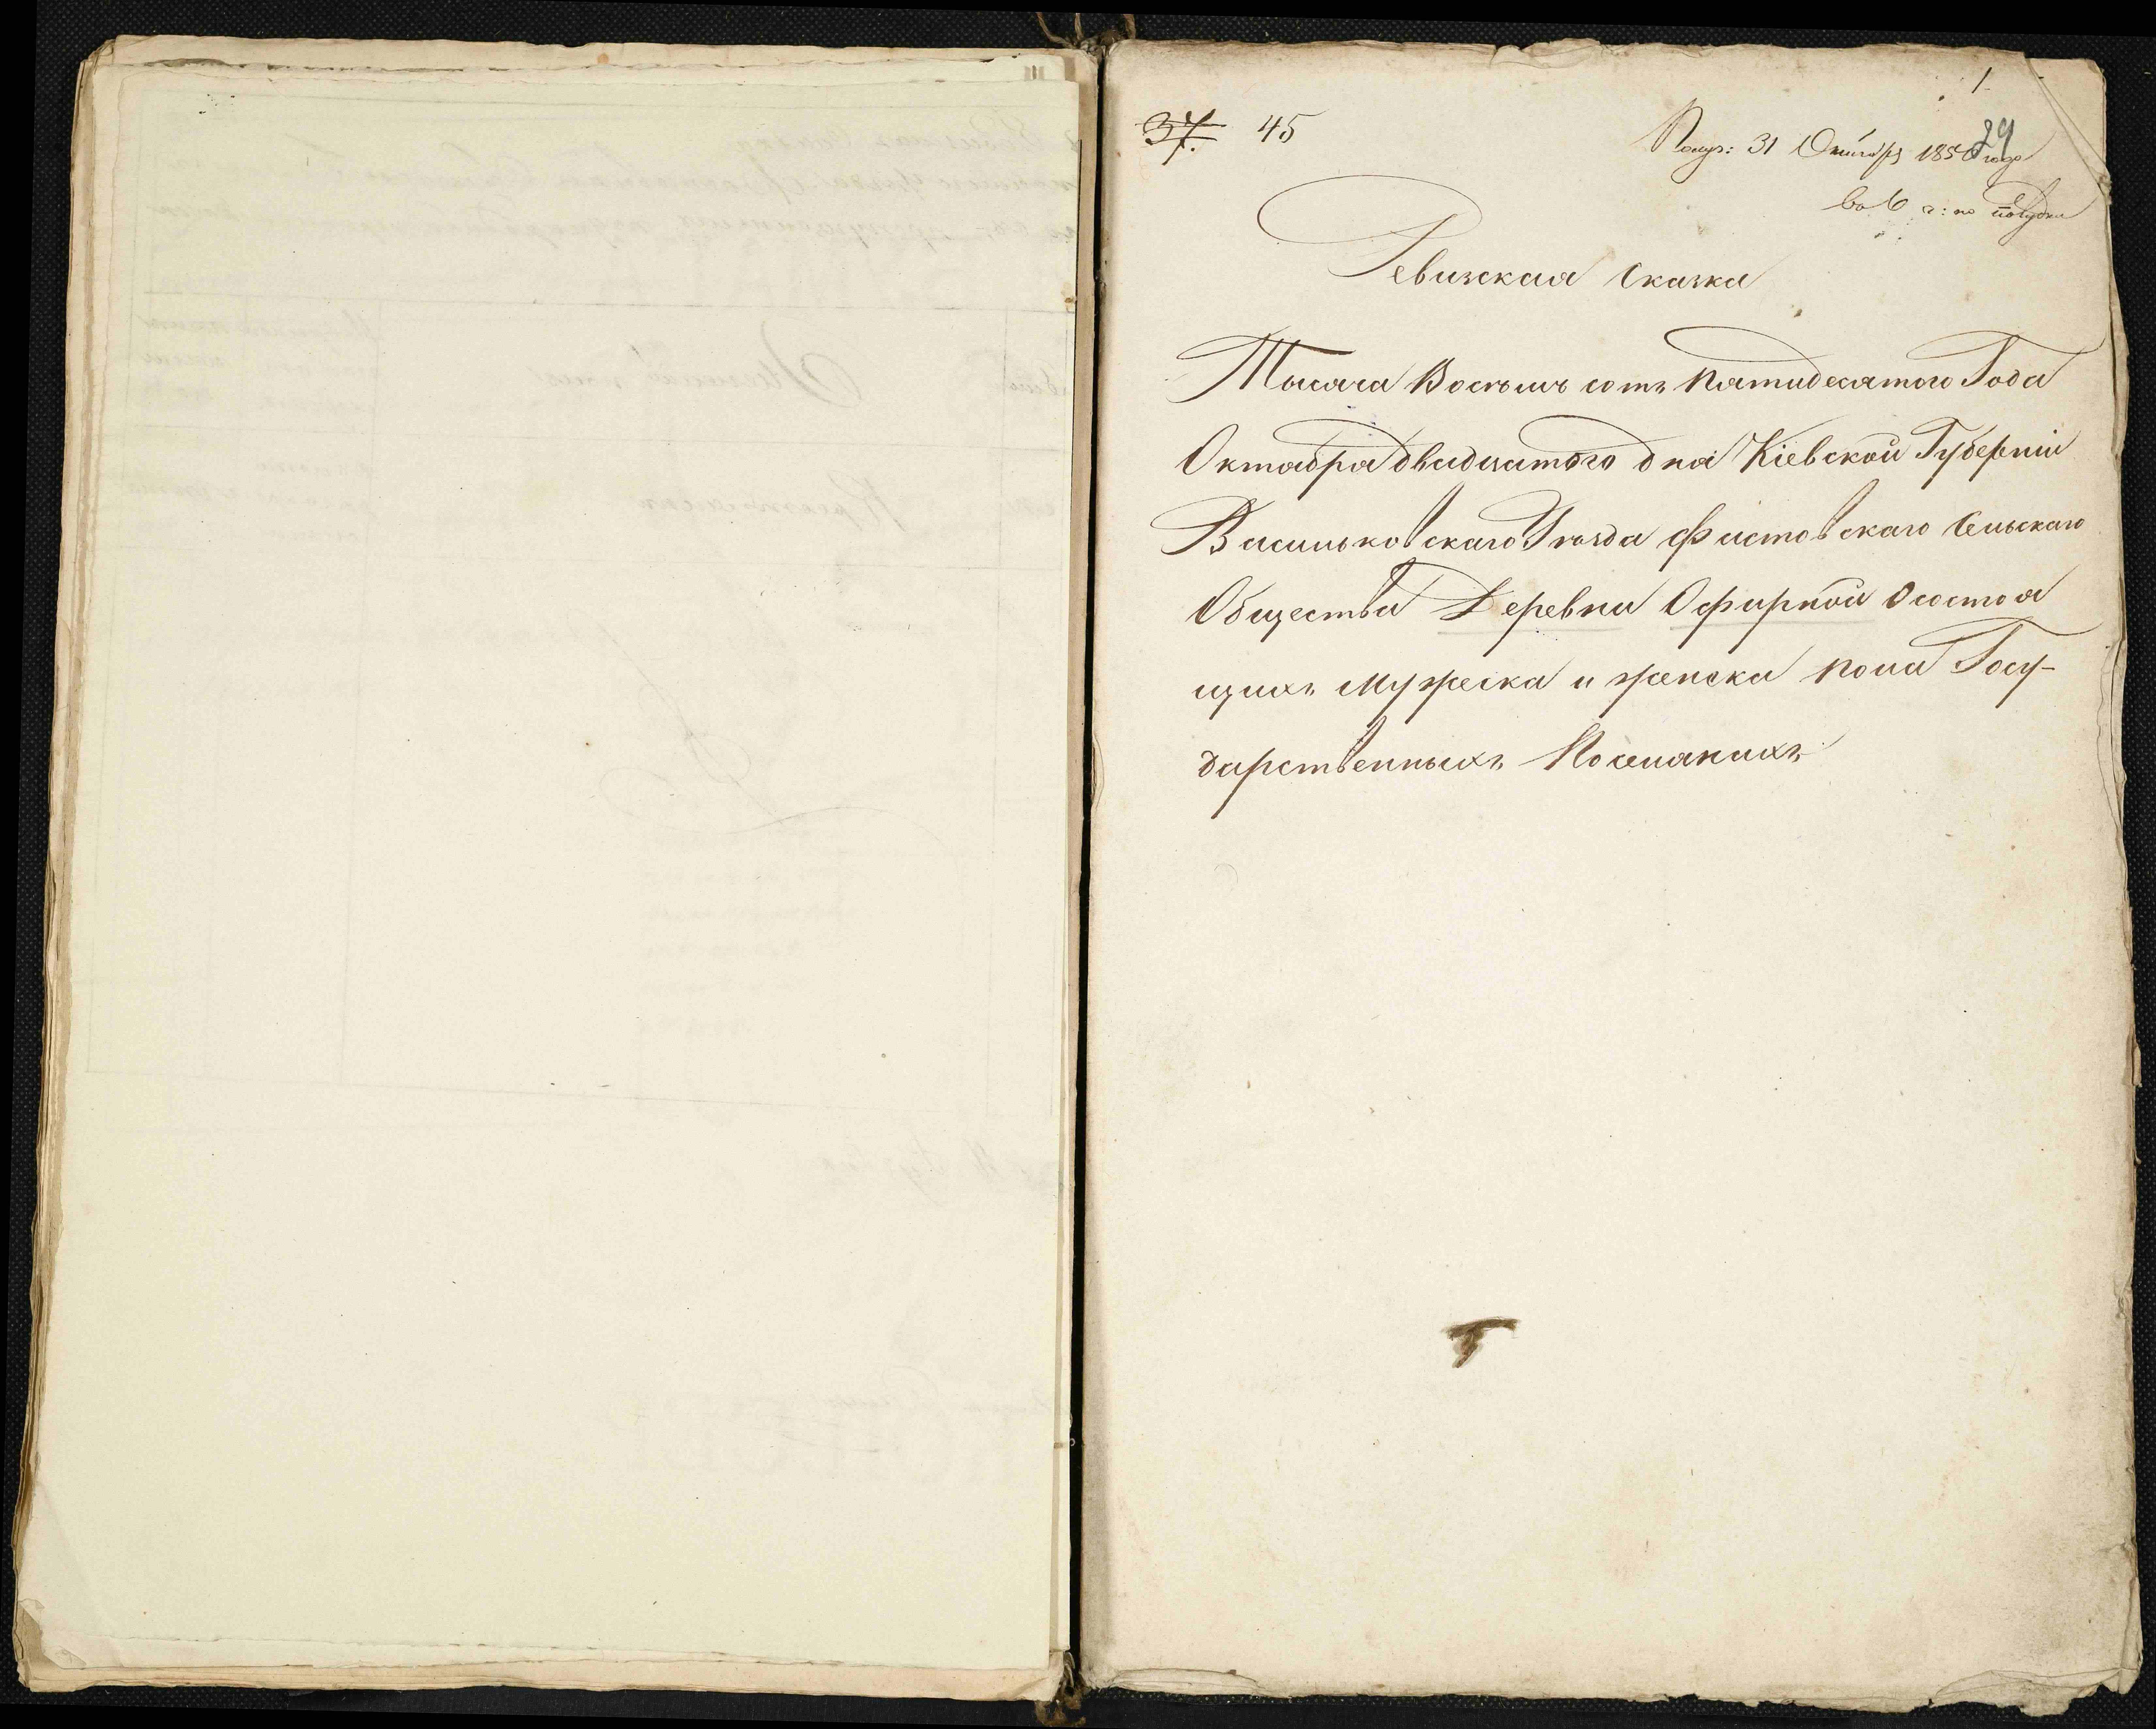 1
37. 45
Получ: 31 Октября 1850 года
29
во 6 ч: по полудни
Ревизская Сказка
Тысяча Восѣмь сотъ Пятидесятого Года
Октября двадцатого дня Кіевской Губерніи
Васильковского Уѣзда Фастовскаго Сельскаго
Общества Деревни Офирной О состоя
щихъ мужеска и женска пола Госу-
дарственныхъ Поселянихъ